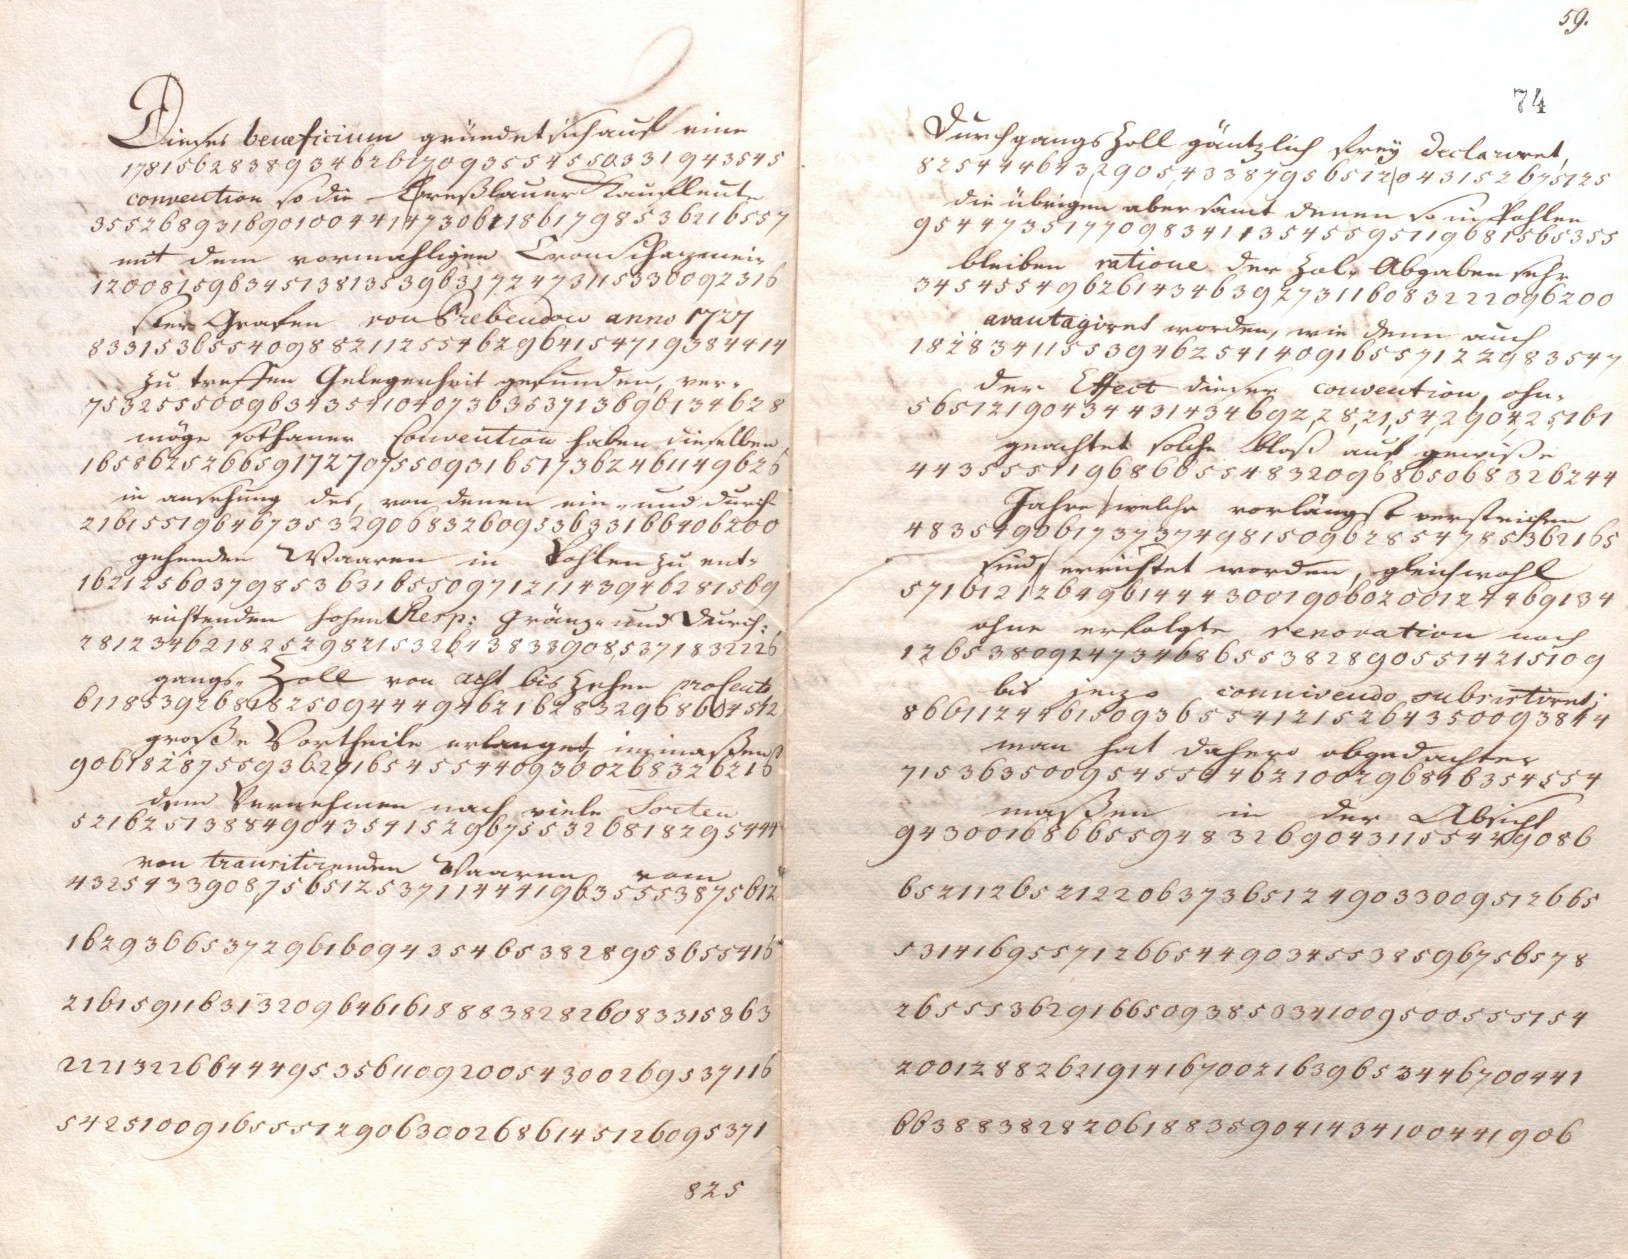 Dieses beneficium gründet sich auf eine
178156283893462617093554550331943545
convention so die Breßlauer Kauffleute
3552689316901004414730611861798536216557
mit dem vormahligen Cron Schazmei-
1200815963451381353963172473115330092316
ster Grafen von Prebendow anno 1727
83315365540988211255462964154719384414
zu treffen Gelegenheit gefunden, ver-
75325550096343541040736353713696134628
möge sothaner Convention haben dieselben
1658625266591727075509316517362461149626
in ansehung des, von denen ein- und durch-
21615519646735329068326095363316640620 0
gehenden Waaren in Pohlen zu ent-
16212560379853631655097121143946281569
richtenden hohen Resp: Gränz- und Durch-
2812346218252982153264383390853718 32226
gangs- Zoll von acht bis zehen pro Cento
61185392681825094449462162832968604512
große Vortheile erlanget immaßen
9061828755936291654554409300268326216
dem Vernehmen nach viele Sorten
521625138849043541529675532681829544 4
von transitirenden Waaren vom
4325433908756512537114441963555387 5612
16293665372961609435465382895365541 6
21615911631320964616188838282608331 5363
222132266444953561109200543002695371 16
542510091655512906300268614512609537 1
825
59.
74
Durchgangs Zoll gäntzlich frey declariret,
825444643290543387956512043152675125
die übrigen aber samt denen so in Pohlen
9544735177098341135455951196815653 55
bleiben ratione der Zoll Abgaben sehr
3454554962614346392731160832220962 00
avantagiret worden, wie denn auch
18283411553946254140916557122983547
der Effect dieser convention, ohn-
56512190434431434692282154290425161
geachtet solche bloß auf gewiße
443555119686655483209686506832624 4
Jahre welche vorlängst verstrichen
483549061737374981509628547853621 65
sind errichtet worden, gleichwohl
5716121264961444300190602001244691 34
ohne erfolgte renovation noch
12653809247346865538289055142151 09
bis jezo connivendo subsistiret;
86611244615093655412152643500938 44
man hat dahero obgedachter
715363500954554462100296846354554
maßen in der Absicht
943001686655948326904311554429086
652112652122063736512490330095126 65
531416955712665449034553859675657 8
2655536291665093850341009500555154
2001288262191416700216396534467004 41
6638838282061883590414341004419 06